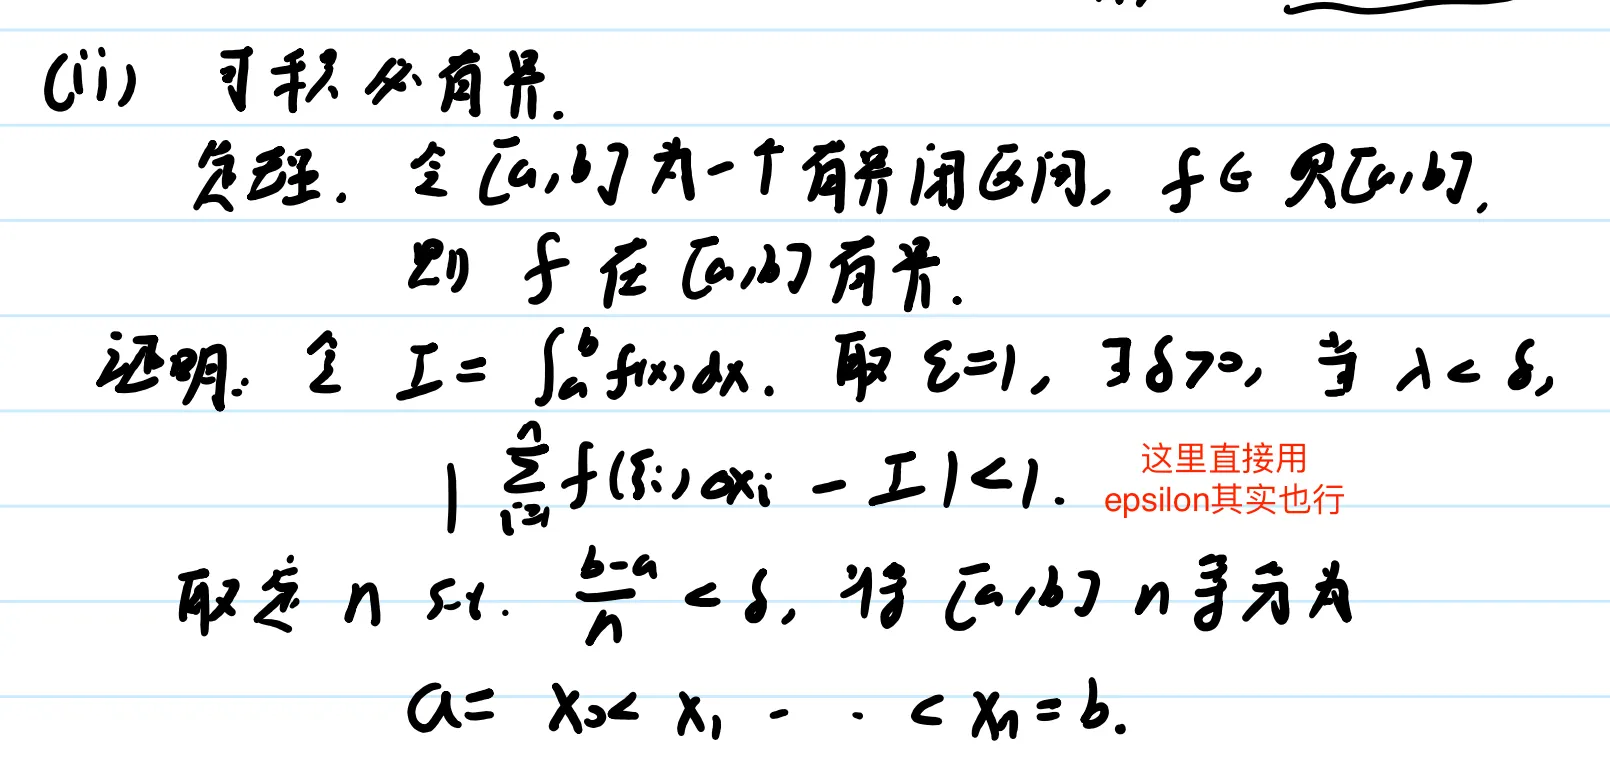 (ii) 可积必有界.
定理. 令[a,b]为一个有界闭区间, f∈R[a,b].
则 f 在[a,b]有界.
证明: 令 I = ∫_a^b f(x)dx. 取 ε=1, ∃δ>0, 当 λ<δ,
| ∑_{i=1}^n f(ξ_i)△x_i - I | < 1. 这里直接用
epsilon其实也行
取定 n s.t. (b-a)/n < δ, 将 [a,b] n等分为
a = x_0 < x_1 ... < x_n = b.